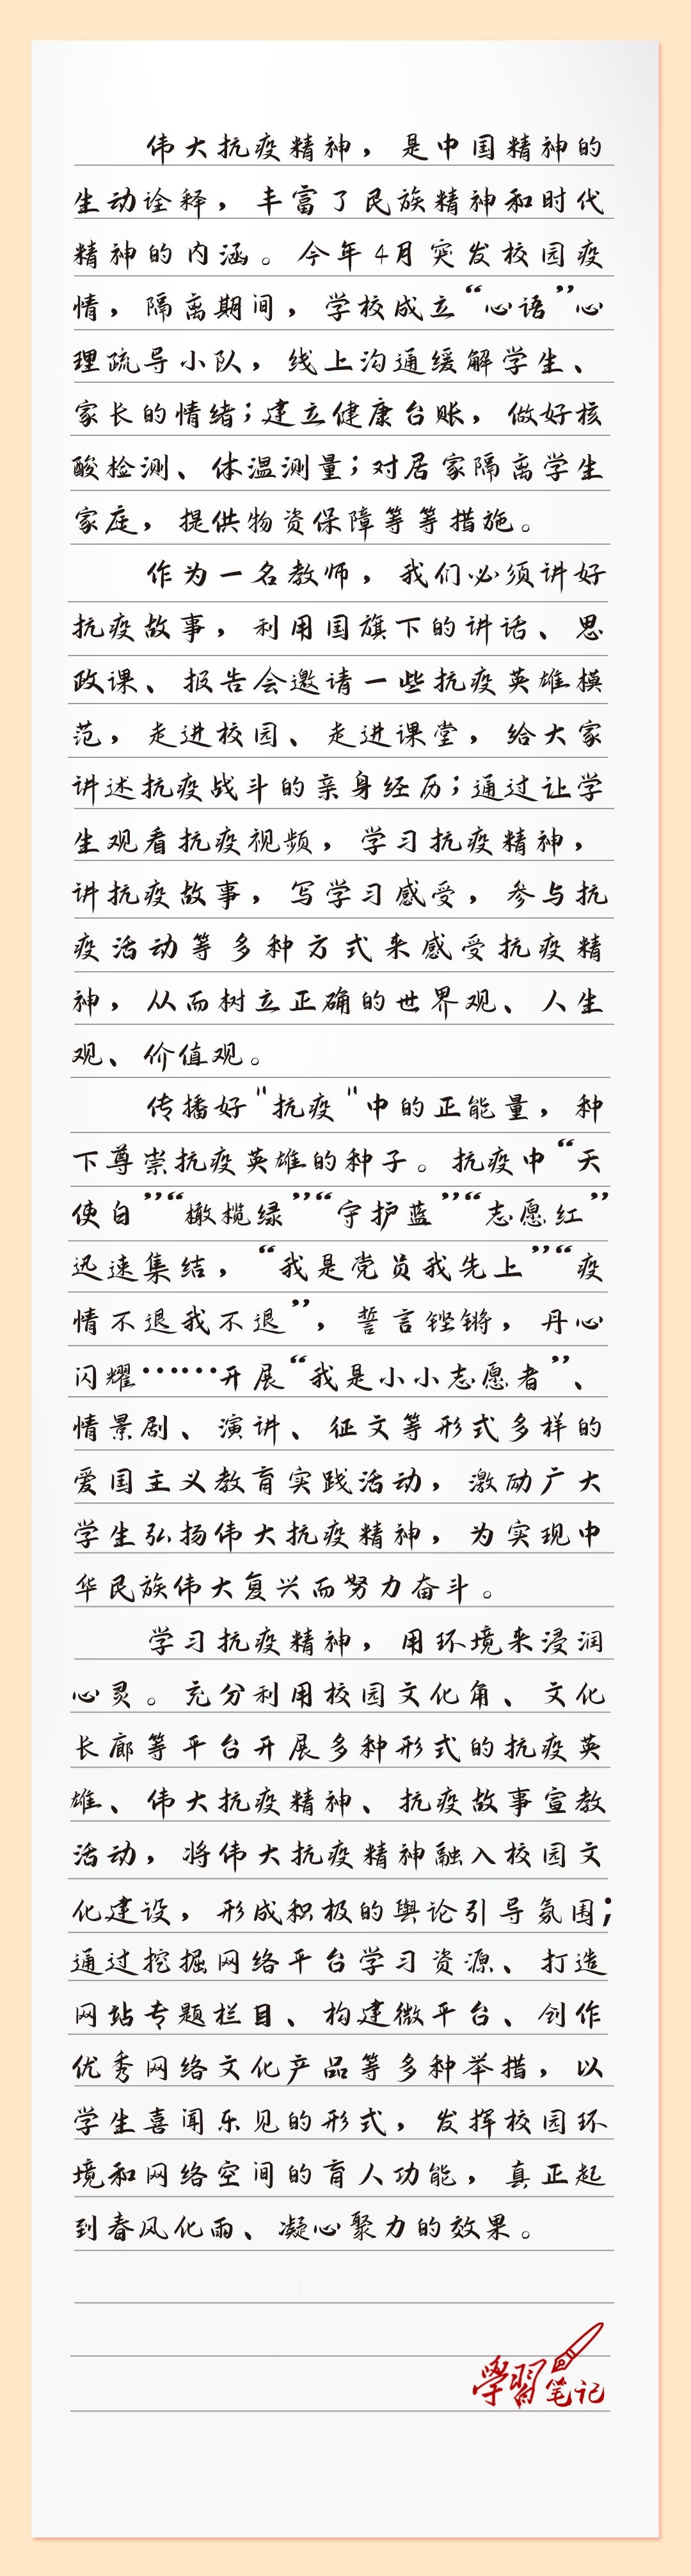 伟大抗疫精神，是中国精神的
生动诠释，丰富了民族精神和时代
精神的内涵。今年4月突发校园疫
情，隔离期间，学校成立“心语”心
理疏导小队，线上沟通缓解学生、
家长的情绪；建立健康台账，做好核
酸检测、体温测量；对居家隔离学生
家庭，提供物资保障等等措施。
作为一名教师，我们必须讲好
抗疫故事，利用国旗下的讲话、思
政课、报告会邀请一些抗疫英雄模
范，走进校园、走进课堂，给大家
讲述抗疫战斗的亲身经历；通过让学
生观看抗疫视频，学习抗疫精神，
讲抗疫故事，写学习感受，参与抗
疫活动等多种方式来感受抗疫精
神，从而树立正确的世界观、人生
观、价值观。
传播好"抗疫"中的正能量，种
下尊崇抗疫英雄的种子。抗疫中“天
使白”“橄榄绿”“守护蓝”“志愿红”
迅速集结，“我是党员我先上”“疫
情不退我不退”，誓言铿锵，丹心
闪耀……开展“我是小小志愿者”、
情景剧、演讲、征文等形式多样的
爱国主义教育实践活动，激励广大
学生弘扬伟大抗疫精神，为实现中
华民族伟大复兴而努力奋斗。
学习抗疫精神，用环境来浸润
心灵。充分利用校园文化角、文化
长廊等平台开展多种形式的抗疫英
雄、伟大抗疫精神、抗疫故事宣教
活动，将伟大抗疫精神融入校园文
化建设，形成积极的舆论引导氛围；
通过挖掘网络平台学习资源、打造
网站专题栏目、构建微平台、创作
优秀网络文化产品等多种举措，以
学生喜闻乐见的形式，发挥校园环
境和网络空间的育人功能，真正起
到春风化雨、凝心聚力的效果。
學習笔记